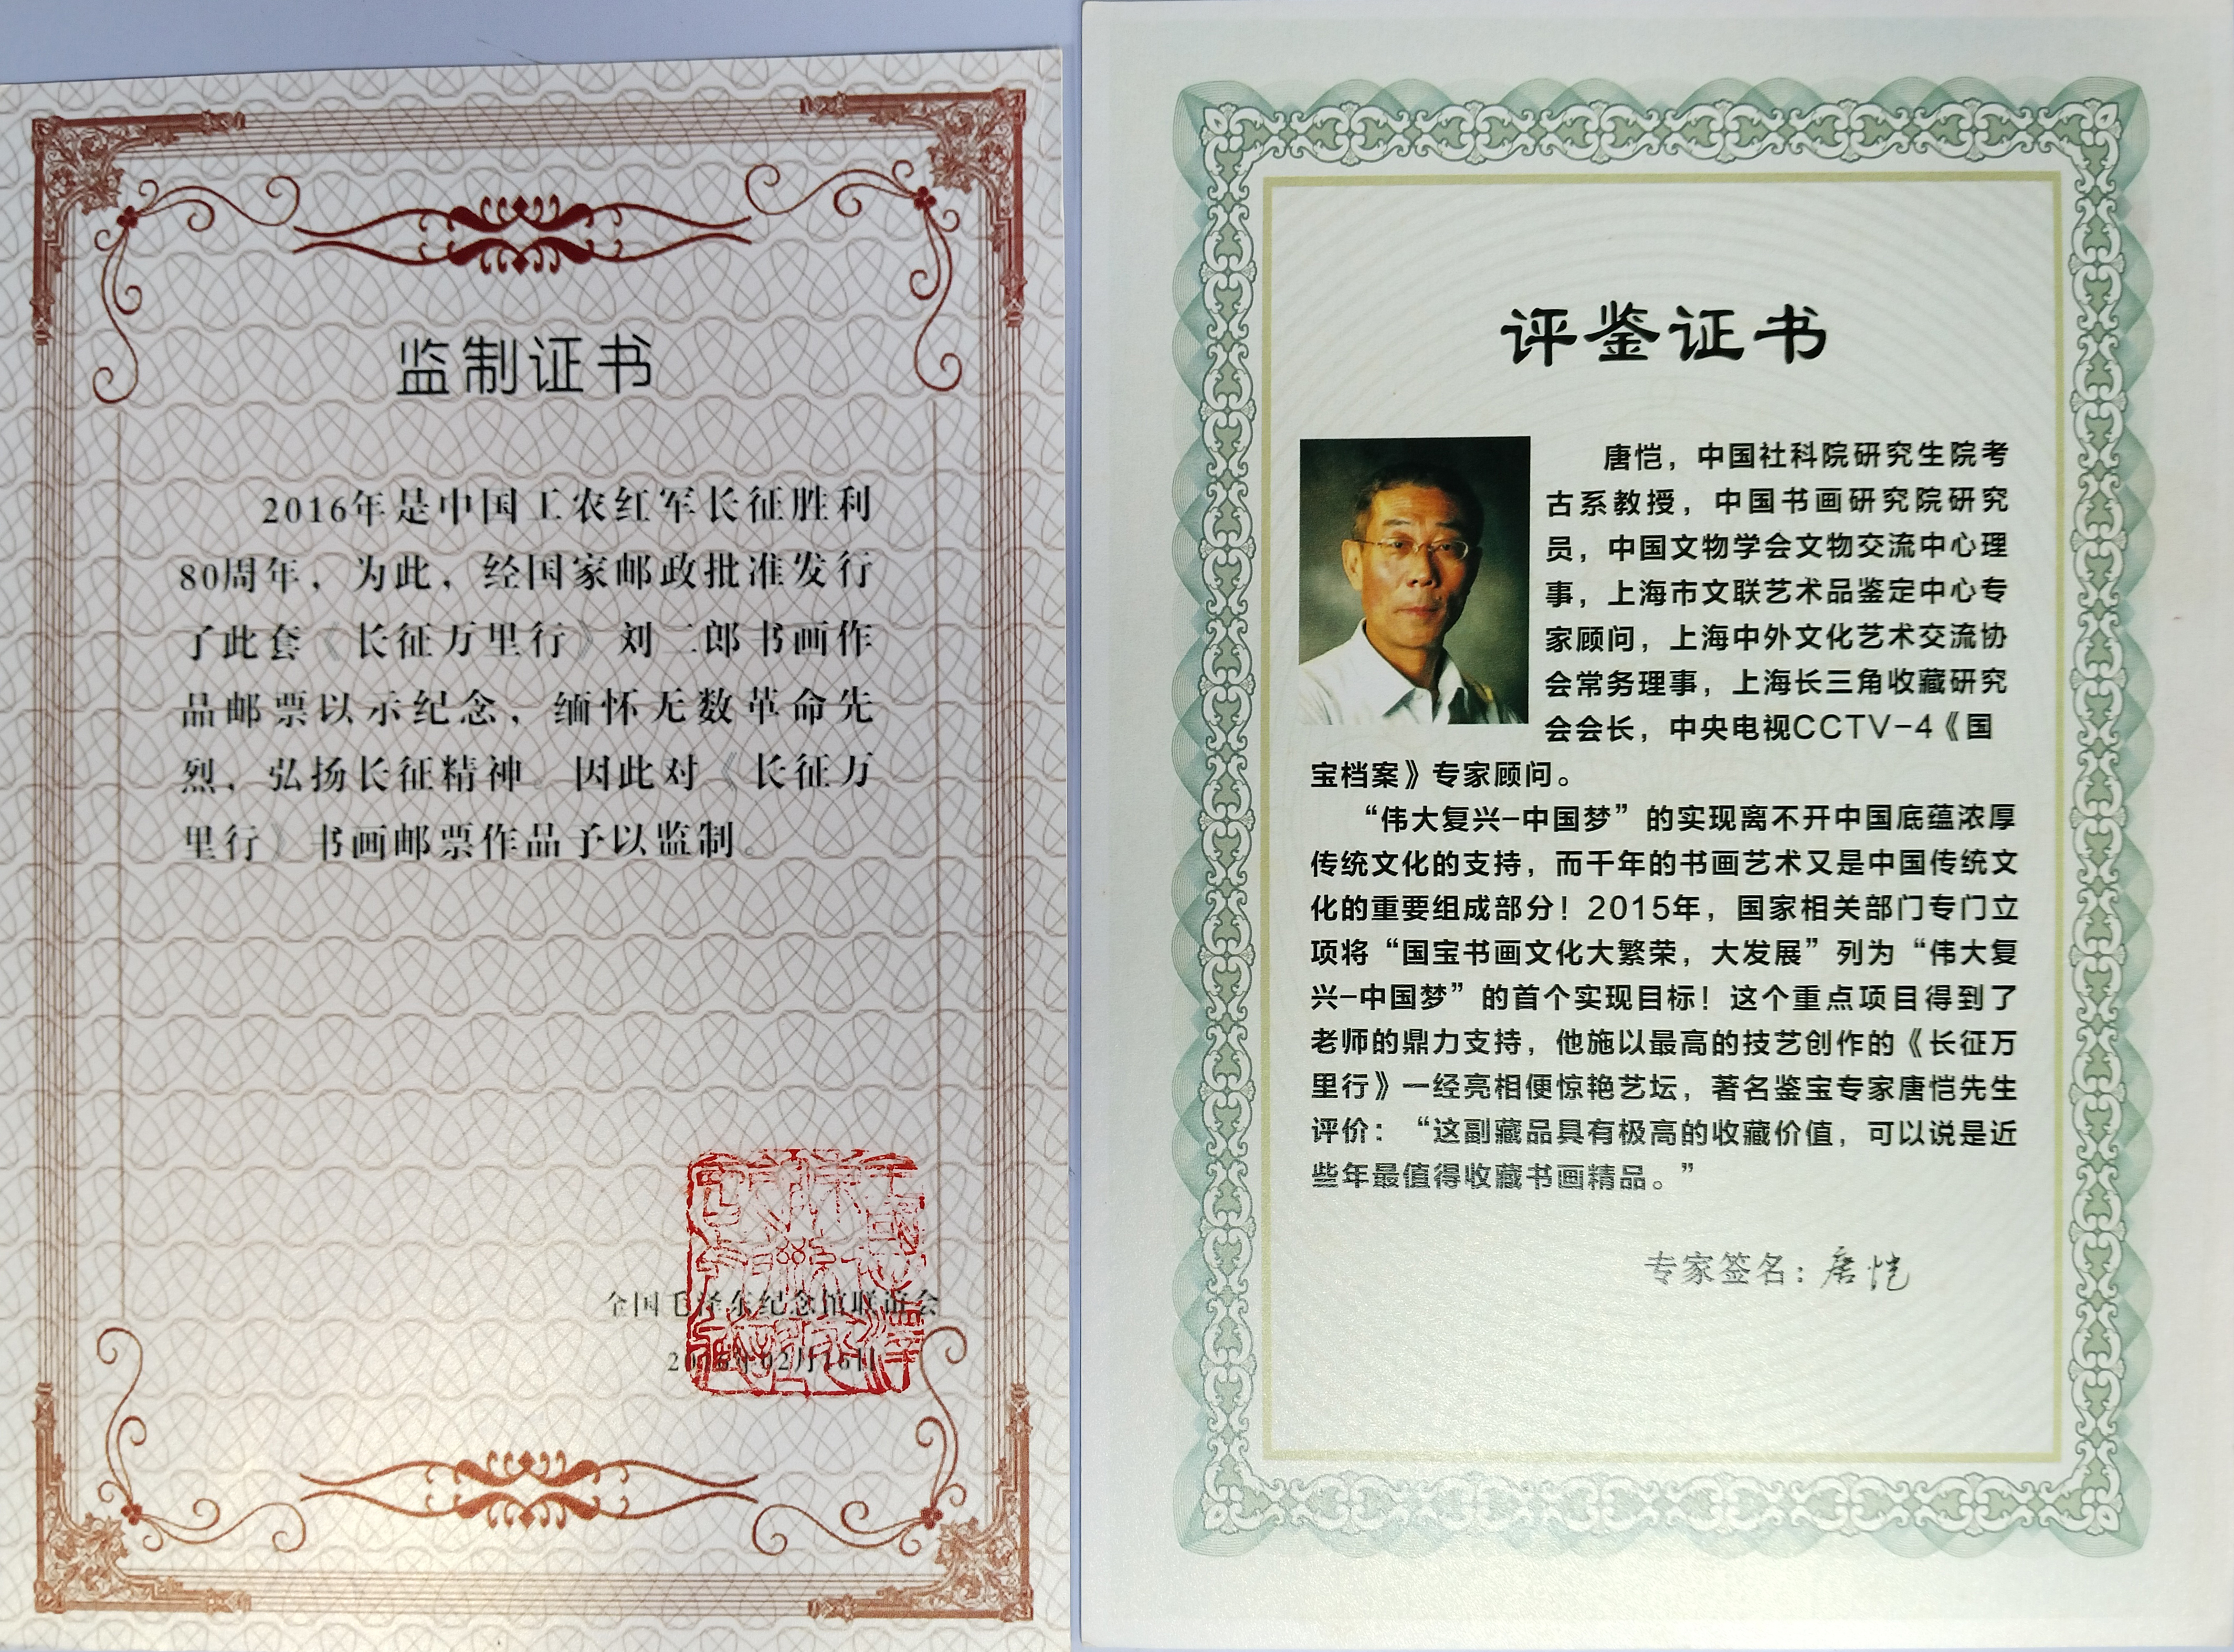 监制证书
2016年是中国工农红军长征胜利
80周年，为此，经国家邮政批准发行
了此套《长征万里行》刘二郎书画作
品邮票以示纪念，缅怀无数革命先
烈，弘扬长征精神。因此对《长征万
里行》书画邮票作品予以监制。
全国毛泽东纪念馆联谊会
评鉴证书
唐恺，中国社科院研究生院考
古系教授，中国书画研究院研究
员，中国文物学会文物交流中心理
事，上海市文联艺术品鉴定中心专
家顾问，上海中外文化艺术交流协
会常务理事，上海长三角收藏研究
会会长，中央电视CCTV-4《国
宝档案》专家顾问。
“伟大复兴-中国梦”的实现离不开中国底蕴浓厚
传统文化的支持，而千年的书画艺术又是中国传统文
化的重要组成部分！2015年，国家相关部门专门立
项将“国宝书画文化大繁荣，大发展”列为“伟大复
兴-中国梦”的首个实现目标！这个重点项目得到了
老师的鼎力支持，他施以最高的技艺创作的《长征万
里行》一经亮相便惊艳艺坛，著名鉴宝专家唐恺先生
评价：“这副藏品具有极高的收藏价值，可以说是近
些年最值得收藏书画精品。”
专家签名：唐恺